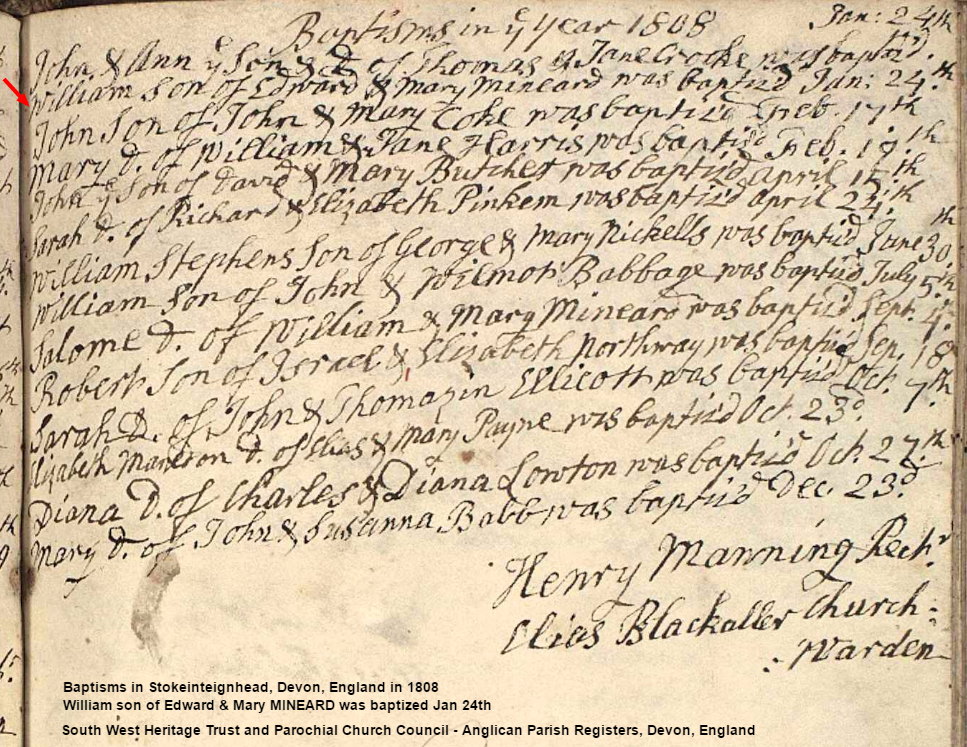 Baptisms in yͤ year 1808
John & Ann yͤ Son & D. of Thomas & Jane Crocke was baptiz'd. Jan: 24th
William Son of Edward & Mary Mineard was baptiz'd Jan: 24.th
John Son of John & Mary Coke was baptiz'd Feb. 17th
Mary D. of William & Jane Harris was baptiz'd Feb. 19.th
John yͤ Son of David & Mary Butcher was baptiz'd April 15th
Sarah D. of Richard & Elizabeth Pinkem was baptiz'd April 24.th
William Stephens Son of George & Mary Nickells was baptiz'd June 30.th
William Son of John & Wilmot Babbage was baptiz'd July 5.th
Salome D. of William & Mary Mineard was baptiz'd Sept. 4.th
Robert Son of Israel & Elizabeth Northway was baptiz'd Sep. 18
Sarah D. of John & Thomazin Ellicott was baptiz'd Oct. 7.th
Elizabeth D. of Elias & Mary Payne was baptiz'd Oct. 23.d
Diana D. of Charles & Diana Lowton was baptiz'd Oct. 27.th
Mary D. of John & Susanna Babb was baptiz'd Dec. 23.d
Henry Manning Rect.r
Elias Blackaller Church-
Warden
Baptisms in Stokeinteignhead, Devon, England in 1808
William son of Edward & Mary MINEARD was baptized Jan 24th
South West Heritage Trust and Parochial Church Council - Anglican Parish Registers, Devon, England